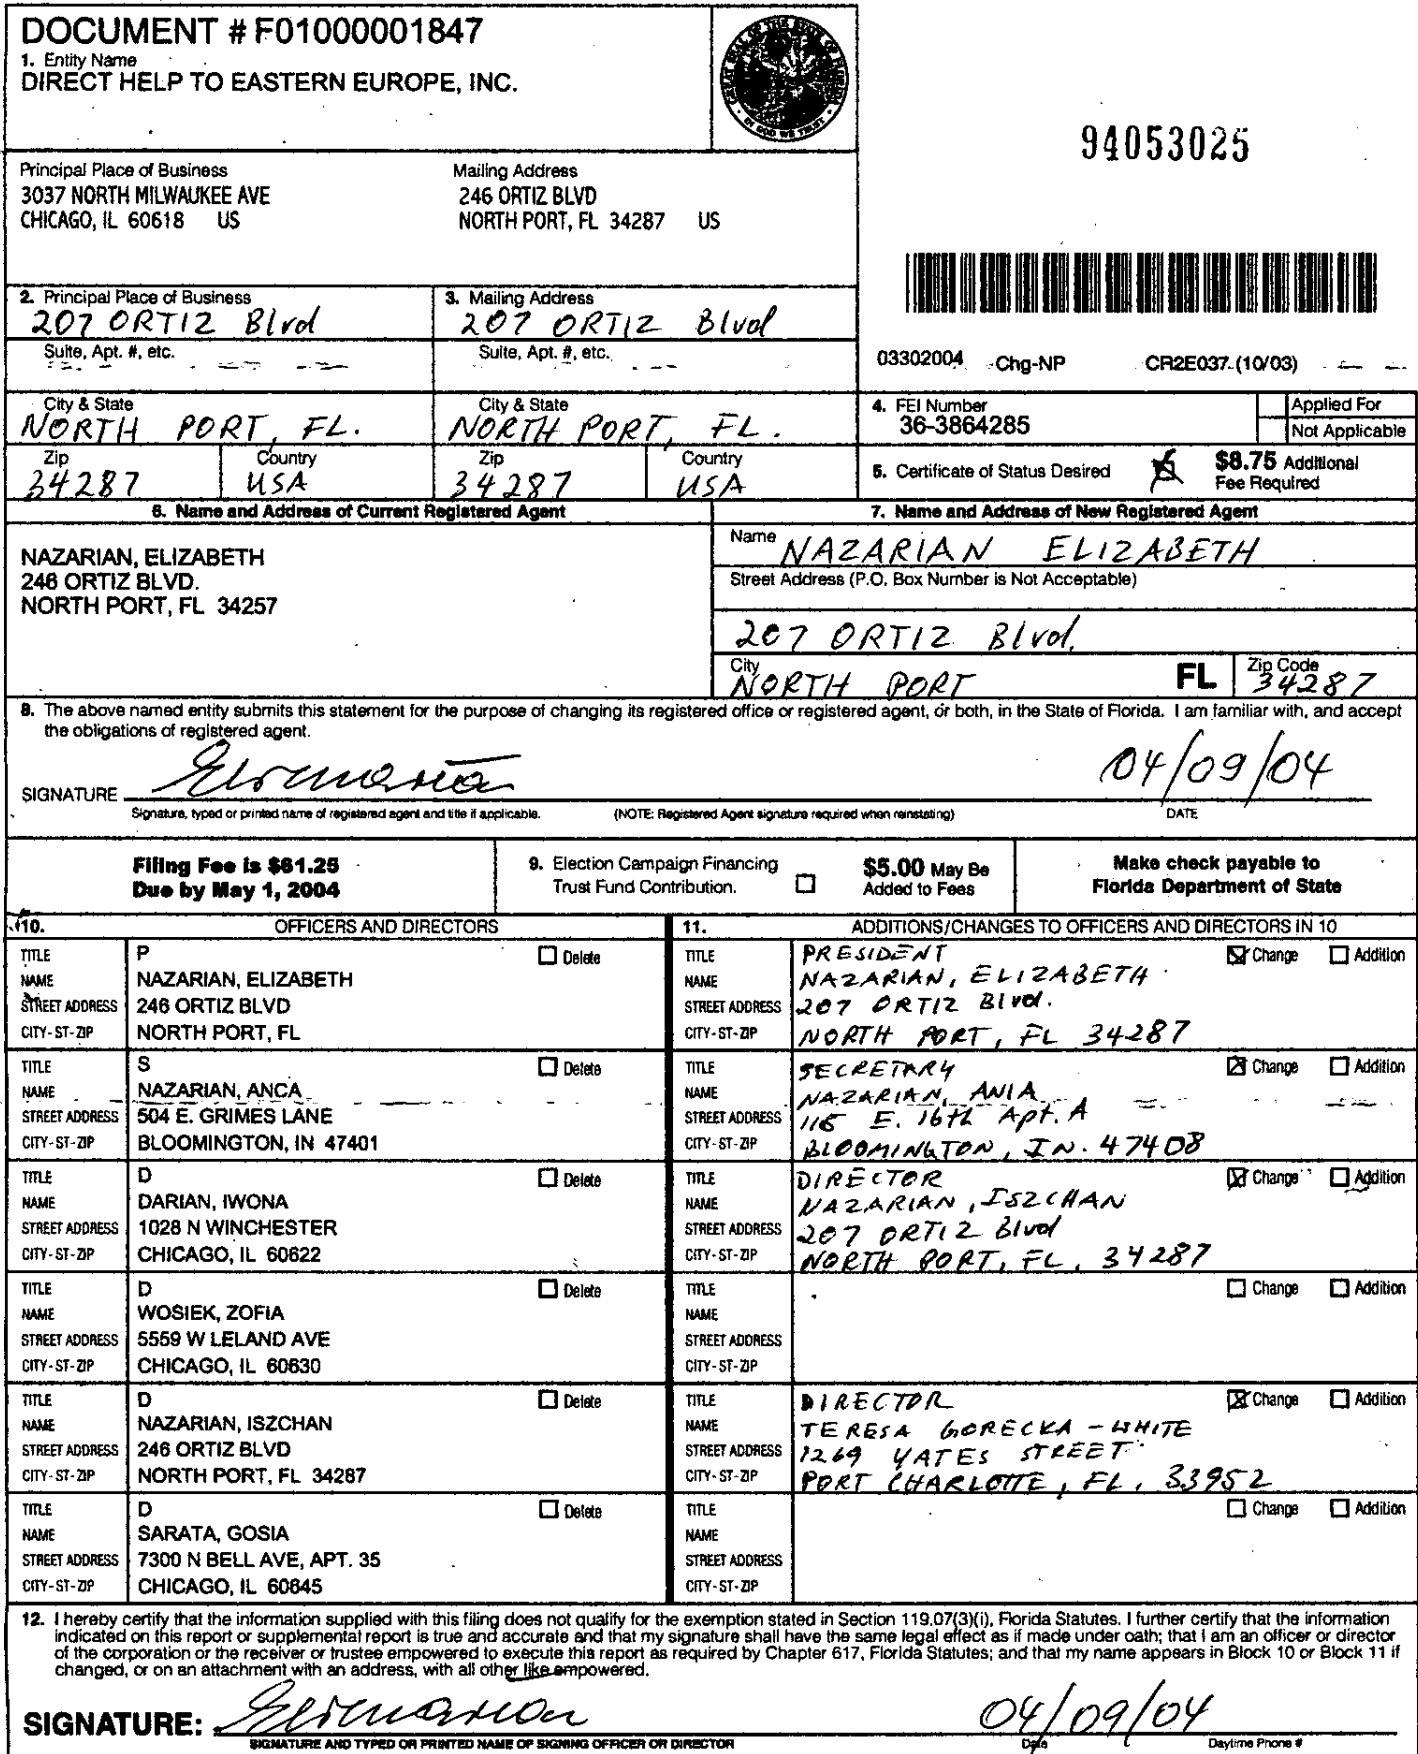 DOCUMENT # F01000001847
1. Entity Name
DIRECT HELP TO EASTERN EUROPE, INC.
GREAT SEAL OF THE STATE OF FLORIDA
IN GOD WE TRUST
94053025
Principal Place of Business
3037 NORTH MILWAUKEE AVE
CHICAGO, IL 60618 US
Mailing Address
246 ORTIZ BLVD
NORTH PORT, FL 34287 US
2. Principal Place of Business
207 ORTIZ Blvd
3. Mailing Address
207 ORTIZ Blvd
Suite, Apt. #, etc.
Suite, Apt. #, etc.
03302004 Chg-NP CR2E037 (10/03)
City & State
NORTH PORT, FL.
City & State
NORTH PORT, FL.
4. FEI Number
36-3864285
Applied For
Not Applicable
Zip
34287
Country
USA
Zip
34287
Country
USA
5. Certificate of Status Desired
$8.75 Additional
Fee Required
6. Name and Address of Current Registered Agent
NAZARIAN, ELIZABETH
246 ORTIZ BLVD.
NORTH PORT, FL 34257
7. Name and Address of New Registered Agent
Name NAZARIAN ELIZABETH
Street Address (P.O. Box Number is Not Acceptable)
207 ORTIZ Blvd.
City
NORTH PORT
FL
Zip Code
34287
8. The above named entity submits this statement for the purpose of changing its registered office or registered agent, or both, in the State of Florida. I am familiar with, and accept
the obligations of registered agent.
SIGNATURE
04/09/04
Signature, typed or printed name of registered agent and title if applicable. (NOTE: Registered Agent signature required when reinstating) DATE
Filing Fee is $61.25
Due by May 1, 2004
9. Election Campaign Financing
Trust Fund Contribution.
$5.00 May Be
Added to Fees
Make check payable to
Florida Department of State
10. OFFICERS AND DIRECTORS
TITLE P Delete
NAME NAZARIAN, ELIZABETH
STREET ADDRESS 246 ORTIZ BLVD
CITY-ST-ZIP NORTH PORT, FL
TITLE S Delete
NAME NAZARIAN, ANCA
STREET ADDRESS 504 E. GRIMES LANE
CITY-ST-ZIP BLOOMINGTON, IN 47401
TITLE D Delete
NAME DARIAN, IWONA
STREET ADDRESS 1028 N WINCHESTER
CITY-ST-ZIP CHICAGO, IL 60622
TITLE D Delete
NAME WOSIEK, ZOFIA
STREET ADDRESS 5559 W LELAND AVE
CITY-ST-ZIP CHICAGO, IL 60630
TITLE D Delete
NAME NAZARIAN, ISZCHAN
STREET ADDRESS 246 ORTIZ BLVD
CITY-ST-ZIP NORTH PORT, FL 34287
TITLE D Delete
NAME SARATA, GOSIA
STREET ADDRESS 7300 N BELL AVE, APT. 35
CITY-ST-ZIP CHICAGO, IL 60645
11. ADDITIONS/CHANGES TO OFFICERS AND DIRECTORS IN 10
TITLE PRESIDENT Change Addition
NAME NAZARIAN, ELIZABETH
STREET ADDRESS 207 ORTIZ Blvd.
CITY-ST-ZIP NORTH PORT, FL 34287
TITLE SECRETARY Change Addition
NAME NAZARIAN, ANIA
STREET ADDRESS 115 E. 16th Apt. A
CITY-ST-ZIP BLOOMINGTON, IN. 47408
TITLE DIRECTOR Change Addition
NAME NAZARIAN, ISZCHAN
STREET ADDRESS 207 ORTIZ Blvd
CITY-ST-ZIP NORTH PORT, FL, 34287
TITLE Change Addition
NAME
STREET ADDRESS
CITY-ST-ZIP
TITLE DIRECTOR Change Addition
NAME TERESA GORECKA-WHITE
STREET ADDRESS 1269 YATES STREET
CITY-ST-ZIP PORT CHARLOTTE, FL, 33952
TITLE Change Addition
NAME
STREET ADDRESS
CITY-ST-ZIP
12. I hereby certify that the information supplied with this filing does not qualify for the exemption stated in Section 119.07(3)(i), Florida Statutes. I further certify that the information
indicated on this report or supplemental report is true and accurate and that my signature shall have the same legal effect as if made under oath; that I am an officer or director
of the corporation or the receiver or trustee empowered to execute this report as required by Chapter 617, Florida Statutes; and that my name appears in Block 10 or Block 11 if
changed, or on an attachment with an address, with all other like empowered.
SIGNATURE:
04/09/04
SIGNATURE AND TYPED OR PRINTED NAME OF SIGNING OFFICER OR DIRECTOR Date Daytime Phone #